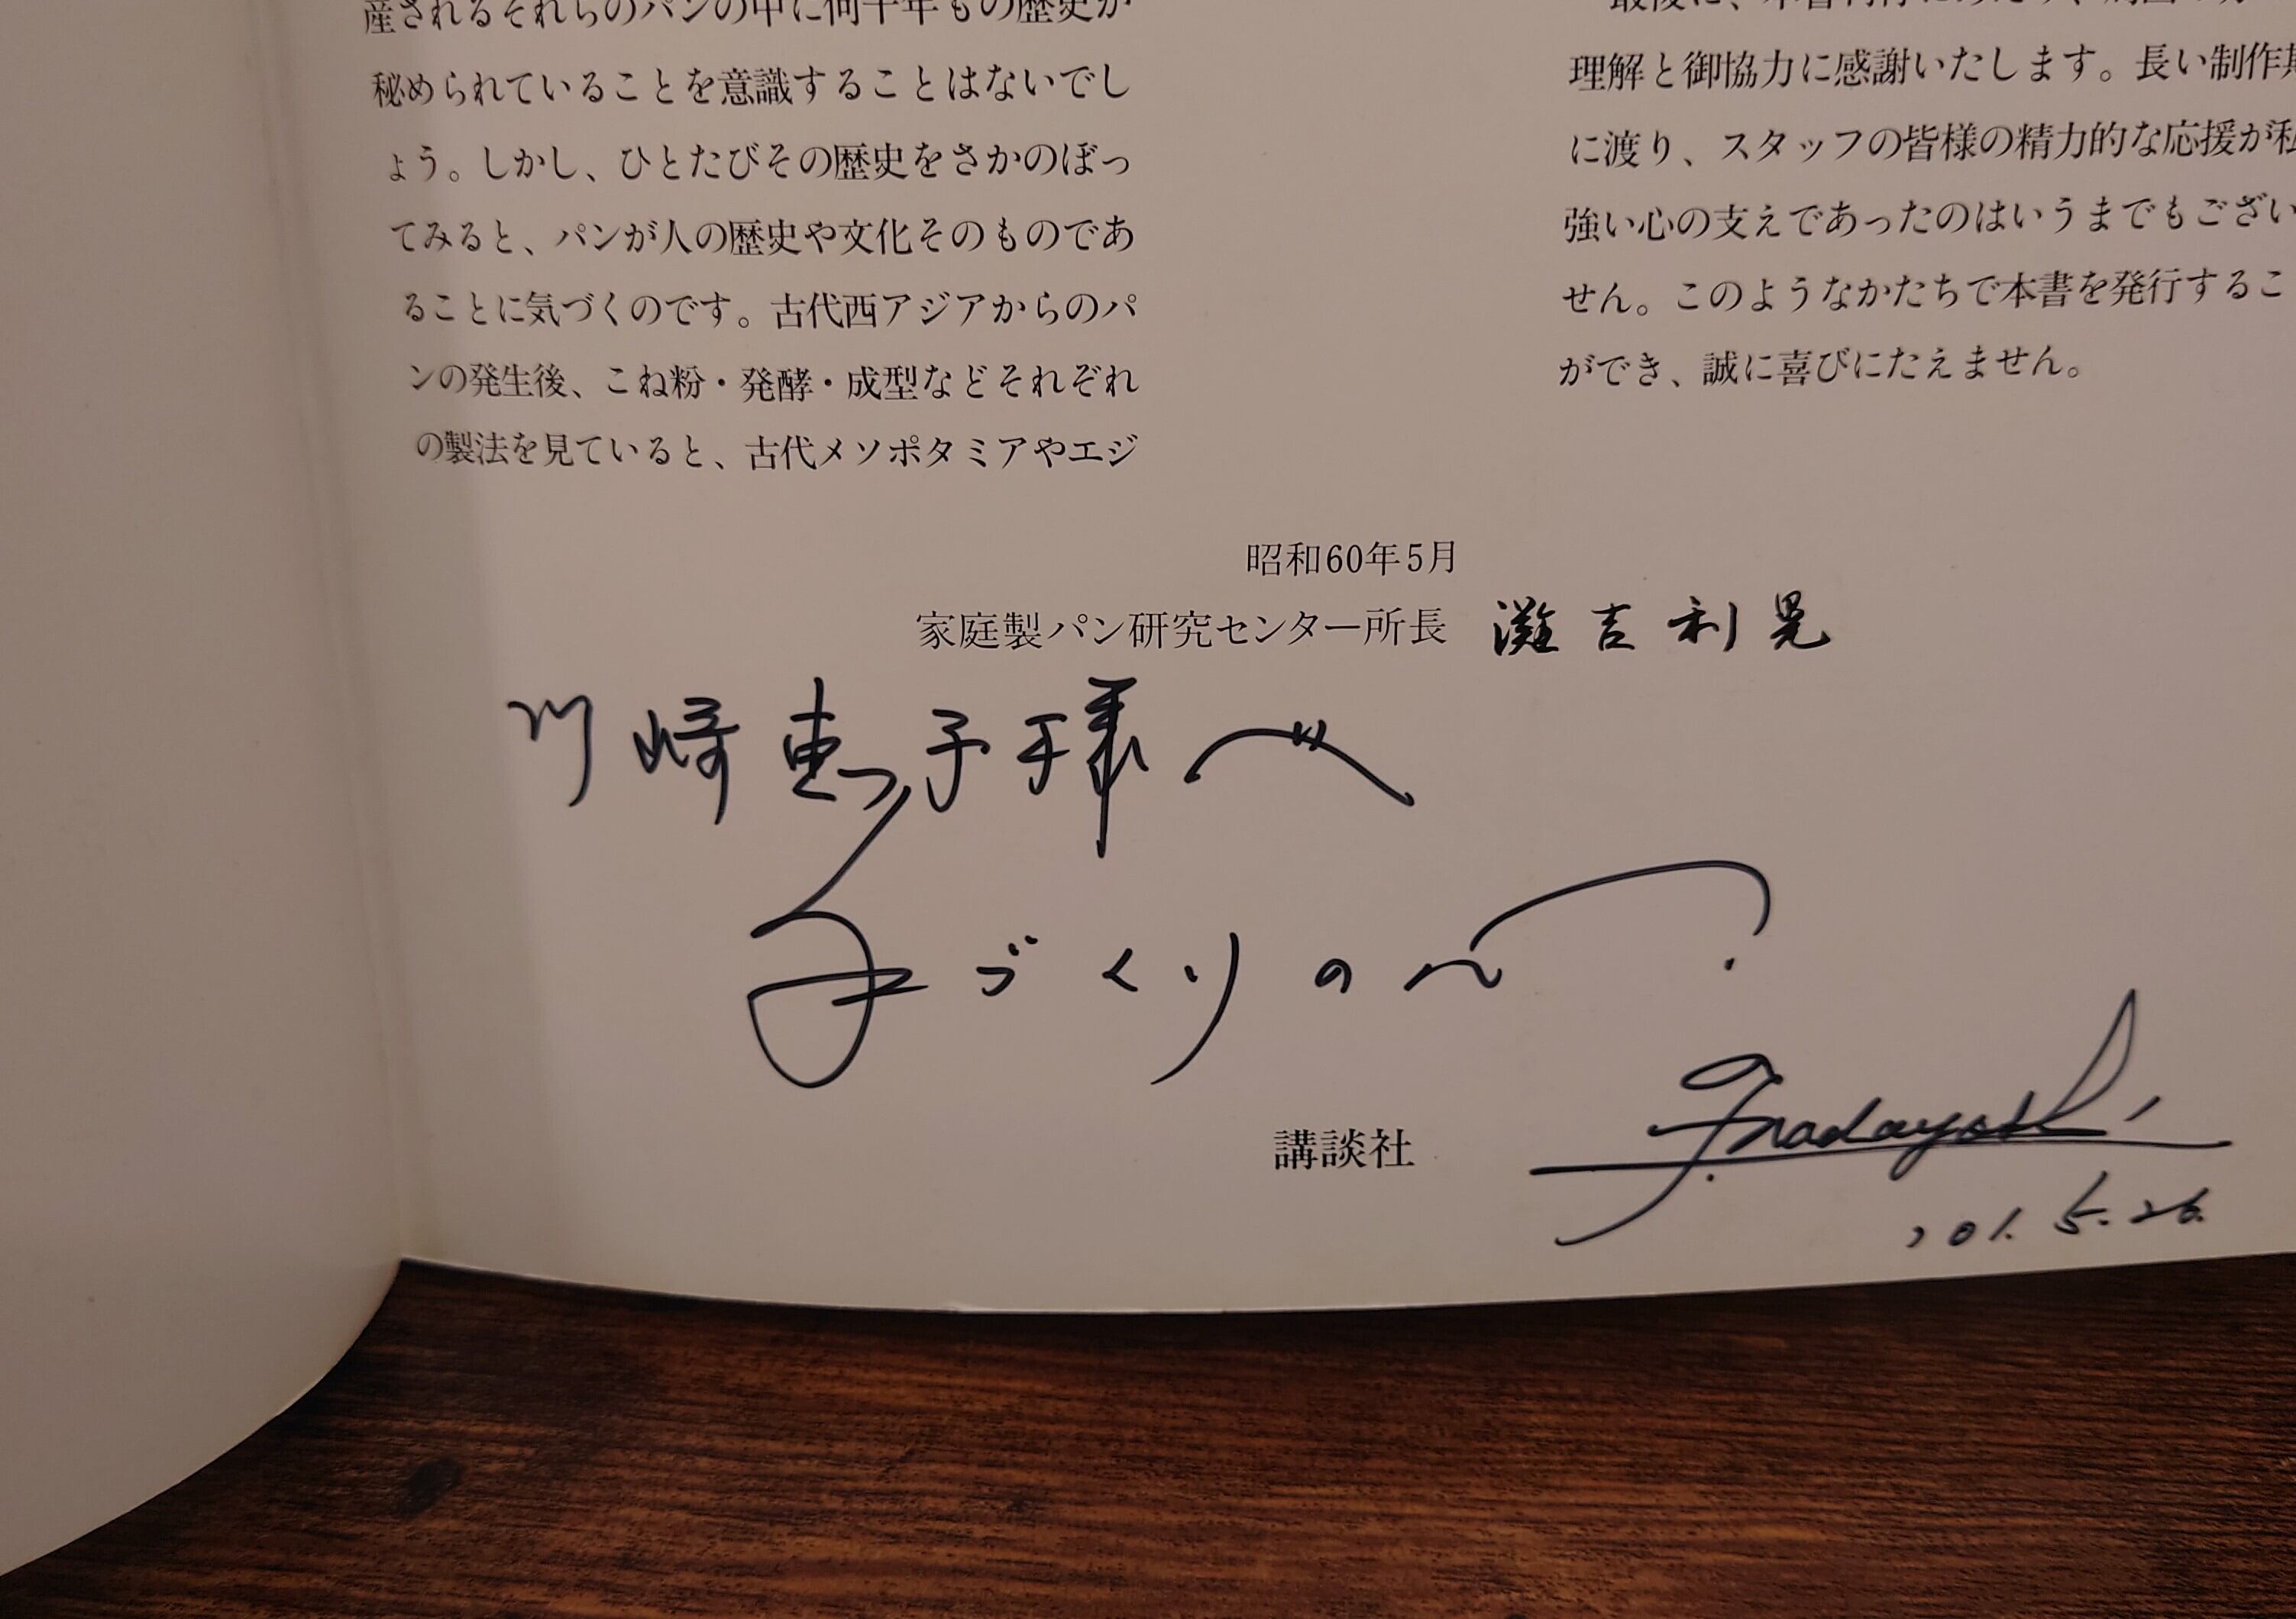 産されるそれらのパンの中に何千年もの歴史が
秘められていることを意識することはないでし
ょう。しかし、ひとたびその歴史をさかのぼっ
てみると、パンが人の歴史や文化そのものであ
ることに気づくのです。古代西アジアからのパ
ンの発生後、こね粉・発酵・成型などそれぞれ
の製法を見ていると、古代メソポタミアやエジ
理解と御協力に感謝いたします。長い制作期
に渡り、スタッフの皆様の精力的な応援が私
強い心の支えであったのはいうまでもござい
せん。このようなかたちで本書を発行するこ
ができ、誠に喜びにたえません。
昭和60年5月
家庭製パン研究センター所長 灘吉利晃
川崎恵子様へ
手づくりの心
講談社
5.26.